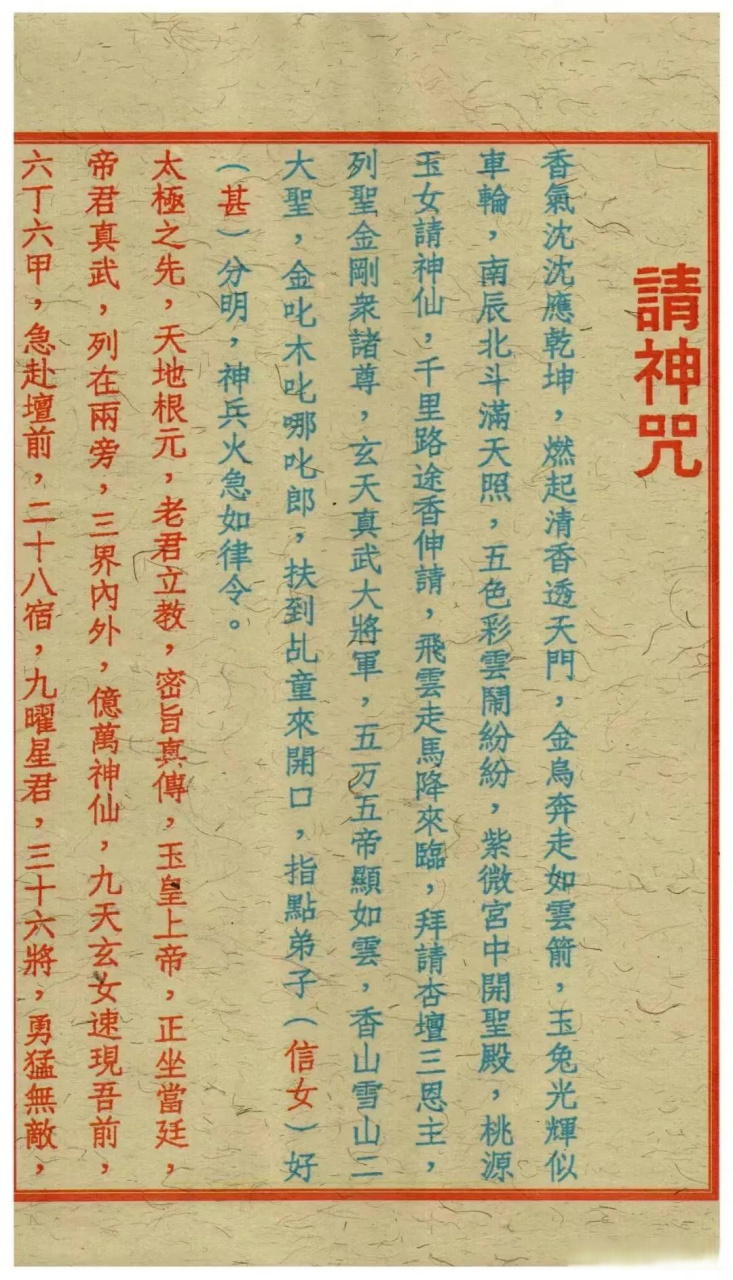 請神咒
香氣沈沈應乾坤，燃起清香透天門，金鳥奔走如雲箭，玉兔光輝似
車輪，南辰北斗滿天照，五色彩雲鬧紛紛，紫微宮中開聖殿，桃源
玉女請神仙，千里路途香伸請，飛雲走馬降來臨，拜請杏壇三恩主，
列聖金剛衆諸尊，玄天真武大將軍，五万五帝顯如雲，香山雪山二
大聖，金叱木叱哪叱郎，扶到乩童來開口，指點弟子（信女）好
（甚）分明，神兵火急如律令。
太極之先，天地根元，老君立教，密旨真傳，玉皇上帝，正坐當廷，
帝君真武，列在兩旁，三界內外，億萬神仙，九天玄女速現吾前，
六丁六甲，急赴壇前，二十八宿，九曜星君，三十六將，勇猛無敵，